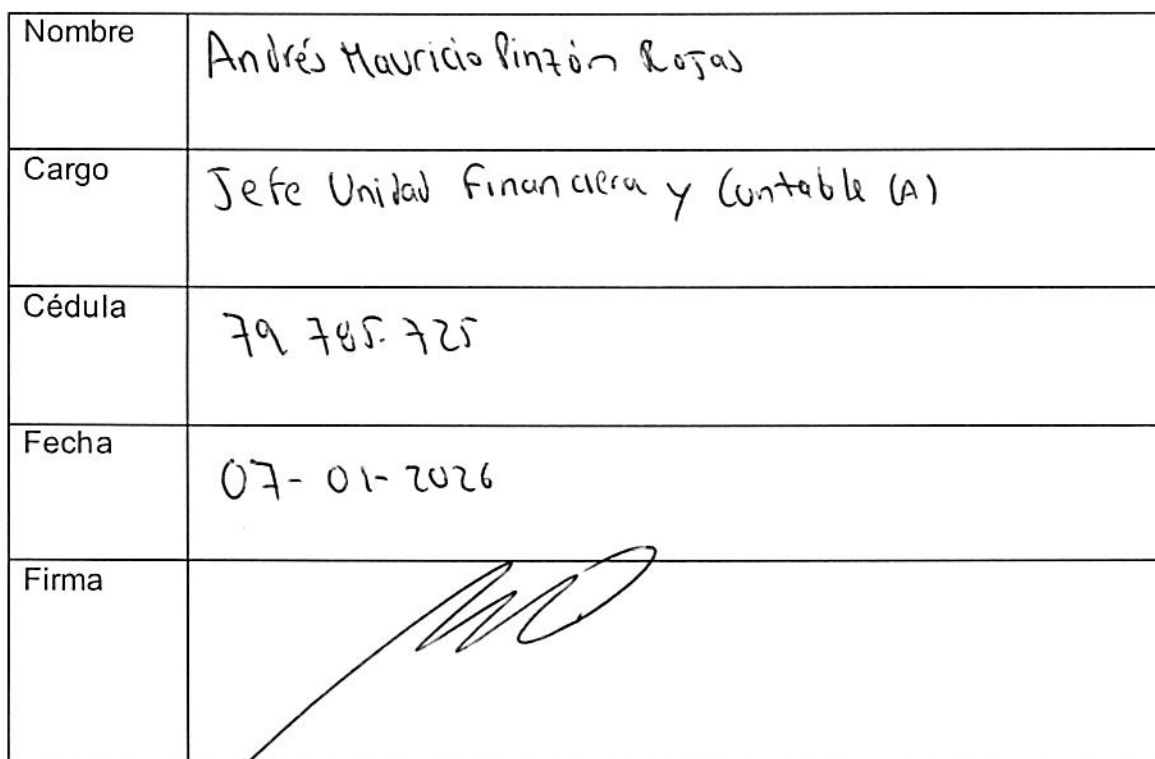 Nombre Andrés Mauricio Pinzón Rojas
Cargo Jefe Unidad Financiera y Contable (A)
Cédula 79.785.725
Fecha 07-01-2026
Firma